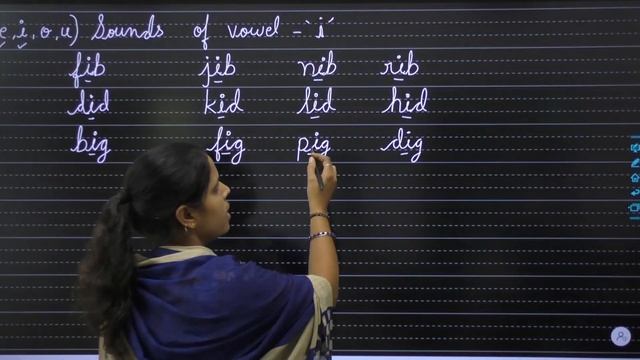 e, i, o, u) Sounds of vowel - `i´
fib jib nib rib
did kid lid hid
big fig pig dig